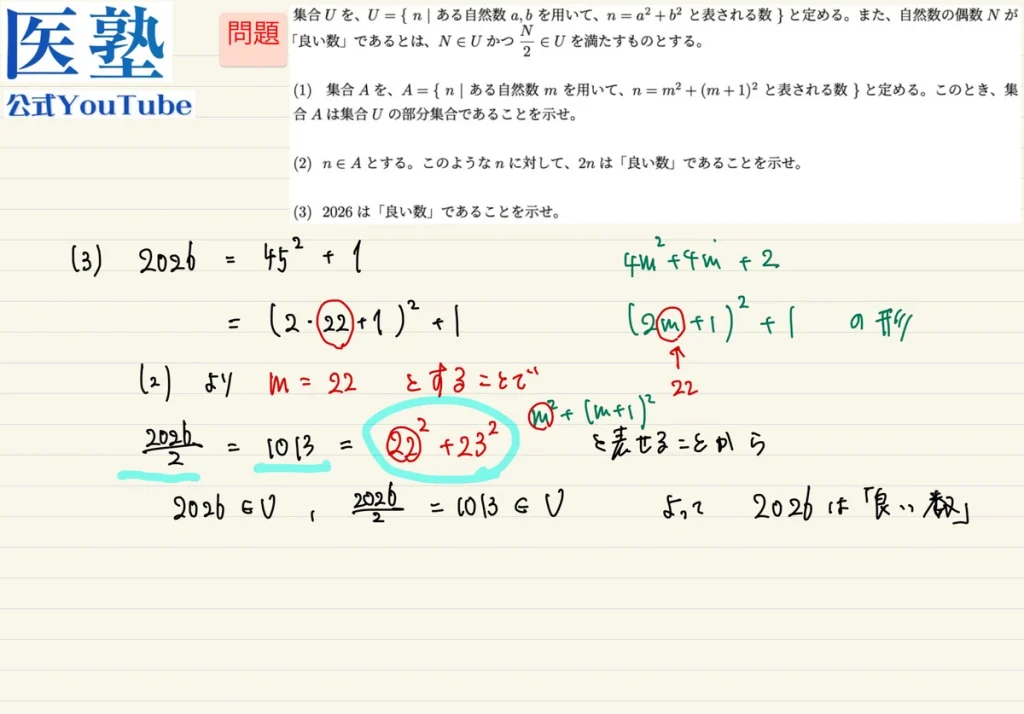 医塾
公式YouTube
問題
集合 U を、U = { n | ある自然数 a, b を用いて、n = a² + b² と表される数 } と定める。また、自然数の偶数 N が
「良い数」であるとは、N ∈ U かつ N/2 ∈ U を満たすものとする。
(1) 集合 A を、A = { n | ある自然数 m を用いて、n = m² + (m + 1)² と表される数 } と定める。このとき、集
合 A は集合 U の部分集合であることを示せ。
(2) n ∈ A とする。このような n に対して、2n は「良い数」であることを示せ。
(3) 2026 は「良い数」であることを示せ。
(3) 2026 = 45² + 1
4m² + 4m + 2
= (2・22+1)² + 1
(2m+1)² + 1 の形
(2) より m = 22 とすることで
22
m² + (m+1)²
2026/2 = 1013 = 22² + 23² と表せることから
2026 ∈ U , 2026/2 = 1013 ∈ U よって 2026は「良い数」